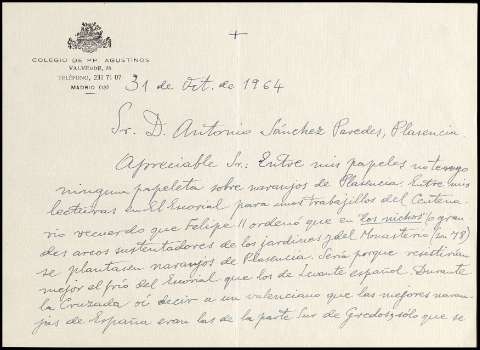 +
COLEGIO DE PP. AGUSTINOS
VALVERDE,
TELÉFONO, 2
MADRID
31 de Oct. de 1964
Sr. D. Antonio Sánchez Paredes, Plasencia.
Apreciable Sr.: Entre mis papeles no tengo
ninguna papeleta sobre naranjos de Plasencia. Entre mis
lecturas en El Escorial para unos trabajillos del Centena-
rio recuerdo que Felipe II ordenó que en los nichos (o gran
des arcos sustentadores de los jardines) del Monasterio (son 78)
se plantasen naranjos de Plasencia. Sería porque resistirían
mejor el frío del Escorial que los de Levante español. Durante
la Cruzada oí decir a un valenciano que las mejores naran-
jas de España eran las de la parte Sur de Gredos, sólo que se